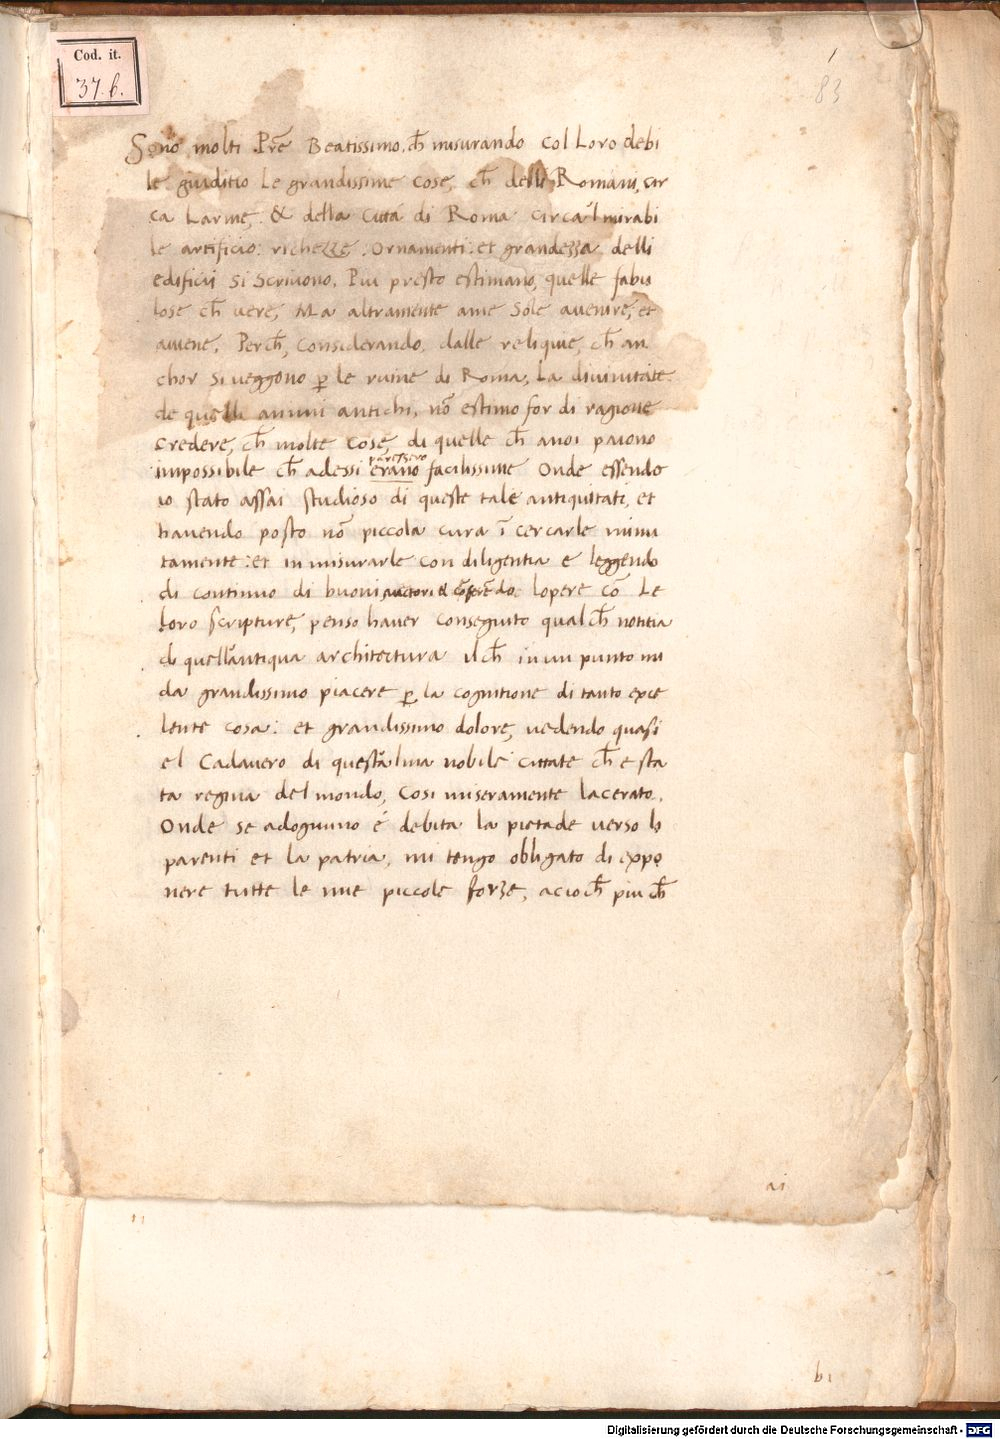 Cod. it.
37.b.
1
83
Sono molti Prē Beatissimo, ch̄ misurando col Loro debi
le giuditio Le grandissime cose, ch̄ delli Romani, cir
ca Larme, & della Città di Roma circa'l mirabi
le artificio: richezze: Ornamenti: et grandezza delli
edificii si Scrivono. Piu presto estimano, quelle fabu
lose ch̄ vere, Ma altramente ame Sole avenire, et
aviene. Perch̄, Considerando, dalle reliquie, ch̄ an
chor si veggono ꝑ le ruine di Roma, La divinitate
de quelli animi antichi, nō estimo for di ragione
credere, ch̄ molte cose, di quelle ch̄ anoi paiono
paressero
impossibile ch̄ adessi erano facilissime Onde essendo
io stato assai studioso di queste tale antiquitati, et
havendo posto nō piccola cura ī cercarle minu
tamente: et in misurarle con diligentia e leggendo
di continuo di buoni auctori & cōferēdo lopere cō Le
loro scripture, penso haver conseguito qualch̄ notitia
di quell'antiqua architectura Ilch̄ in un punto mi
da grandissimo piacere ꝑ la cognitione di tanto exce
lente cosa: et grandissimo dolore, vedendo quasi
el Cadavero di quest'alma nobile cittate ch̄ e sta
ta regina del mondo, Cosi miseramente lacerato.
Onde se adognuno é debita la pietade verso lo
parenti et la patria, mi tengo obligato di expo
nere tutte le mie piccole forze, acioch̄ piu ch̄
ai
bi
Digitalisierung gefördert durch die Deutsche Forschungsgemeinschaft - DFG